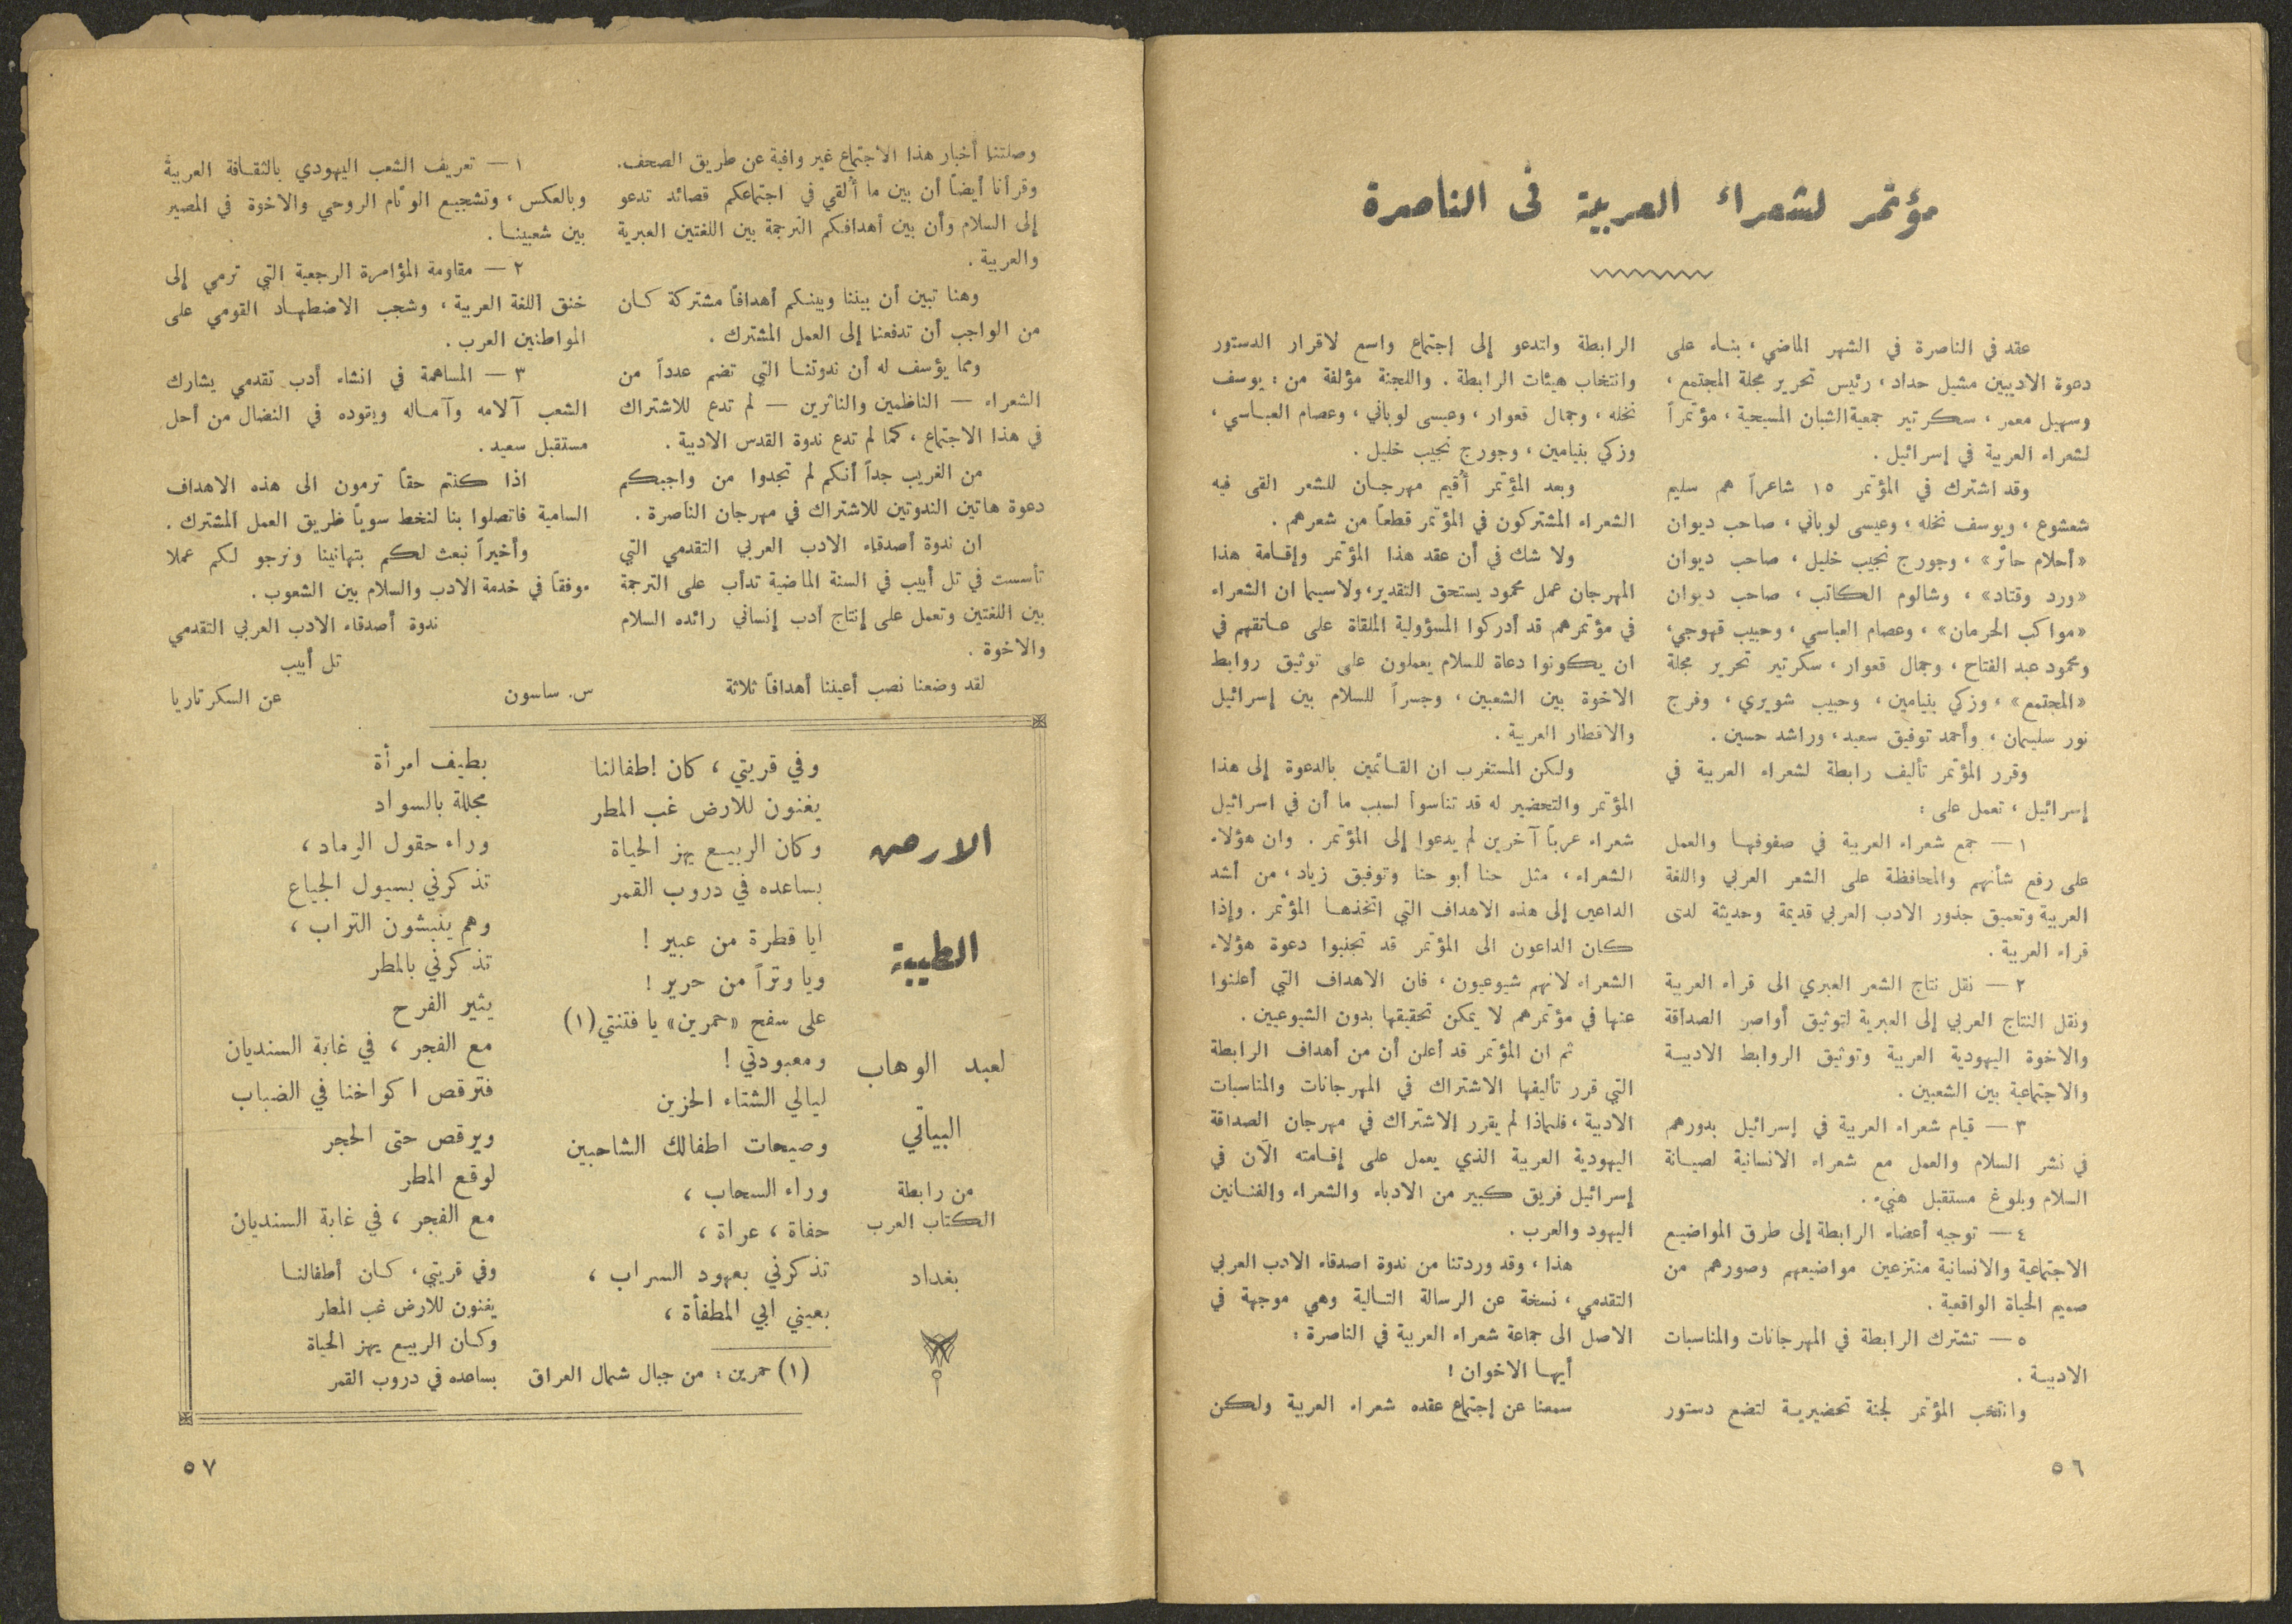 مؤتمر لشعراء العربية فى الناصرة
عقد في الناصرة في الشهر الماضي، بناء على
دعوة الاديبين مشيل حداد، رئيس تحرير مجلة المجتمع،
وسهيل معمر، سكرتير جمعية الشبان المسيحية، مؤتمراً
لشعراء العربية في إسرائيل.
وقد اشترك في المؤتمر ١٥ شاعراً هم سليم
شعشوع، ويوسف نخله، وعيسى لوباني، صاحب ديوان
«أحلام حائر»، وجورج نجيب خليل، صاحب ديوان
«ورد وقتاد»، وشالوم الكاتب، صاحب ديوان
«مواكب الحرمان»، وعصام العباسي، وحبيب قهوجي،
ومحمود عبد الفتاح، وجمال قعوار، سكرتير تحرير مجلة
«المجتمع»، وزكي بنيامين، وحبيب شويري، وفرج
نور سليمان، وأحمد توفيق سعيد، وراشد حسين.
وقرر المؤتمر تأليف رابطة لشعراء العربية في
إسرائيل، تعمل على:
١ — جمع شعراء العربية في صفوفها والعمل
على رفع شأنهم والمحافظة على الشعر العربي واللغة
العربية وتعميق جذور الادب العربي قديمة وحديثة لدى
قراء العربية.
٢ — نقل نتاج الشعر العبري الى قراء العربية
ونقل النتاج العربي إلى العبرية لتوثيق أواصر الصداقة
والاخوة اليهودية العربية وتوثيق الروابط الادبية
والاجتماعية بين الشعبين.
٣ — قيام شعراء العربية في إسرائيل بدورهم
في نشر السلام والعمل مع شعراء الانسانية لصيانة
السلام وبلوغ مستقبل هنيء.
٤ — توجيه أعضاء الرابطة إلى طرق المواضيع
الاجتماعية والانسانية منتزعين مواضيعهم وصورهم من
صميم الحياة الواقعية.
٥ — تشترك الرابطة في المهرجانات والمناسبات
الادبية.
وانتخب المؤتمر لجنة تحضيرية لتضع دستور
الرابطة ولتدعو إلى إجتماع واسع لاقرار الدستور
وانتخاب هيئات الرابطة. واللجنة مؤلفة من: يوسف
نخله، وجمال قعوار، وعيسى لوباني، وعصام العباسي،
وزكي بنيامين، وجورج نجيب خليل.
وبعد المؤتمر أُقيم مهرجان للشعر القى فيه
الشعراء المشتركون في المؤتمر قطعاً من شعرهم.
ولا شك في أن عقد هذا المؤتمر وإقامة هذا
المهرجان عمل محمود يستحق التقدير، ولاسيما ان الشعراء
في مؤتمرهم قد أدركوا المسؤولية الملقاة على عاتقهم في
ان يكونوا دعاة للسلام يعملون على توثيق روابط
الاخوة بين الشعبين، وجسراً للسلام بين إسرائيل
والاقطار العربية.
ولكن المستغرب ان القائمين بالدعوة إلى هذا
المؤتمر والتحضير له قد تناسوا لسبب ما أن في اسرائيل
شعراء عرباً آخرين لم يدعوا إلى المؤتمر. وان هؤلاء
الشعراء، مثل حنا أبو حنا وتوفيق زياد، من أشد
الداعين إلى هذه الاهداف التي اتخذها المؤتمر. وإذا
كان الداعون الى المؤتمر قد تجنبوا دعوة هؤلاء
الشعراء لانهم شيوعيون، فان الاهداف التي أعلنوا
عنها في مؤتمرهم لا يمكن تحقيقها بدون الشيوعيين.
ثم ان المؤتمر قد أعلن أن من أهداف الرابطة
التي قرر تأليفها الاشتراك في المهرجانات والمناسبات
الادبية، فلماذا لم يقرر الاشتراك في مهرجان الصداقة
اليهودية العربية الذي يعمل على إقامته الآن في
إسرائيل فريق كبير من الادباء والشعراء والفنانين
اليهود والعرب.
هذا، وقد وردتنا من ندوة اصدقاء الادب العربي
التقدمي، نسخة عن الرسالة التالية وهي موجهة في
الاصل الى جماعة شعراء العربية في الناصرة:
أيها الاخوان!
سمعنا عن إجتماع عقده شعراء العربية ولكن
٥٦
وصلتنا أخبار هذا الاجتماع غير وافية عن طريق الصحف.
وقرأنا أيضاً أن بين ما أُلقي في اجتماعكم قصائد تدعو
إلى السلام وأن بين أهدافكم الترجمة بين اللغتين العبرية
والعربية.
وهنا تبين أن بيننا وبينكم أهدافاً مشتركة كان
من الواجب أن تدفعنا إلى العمل المشترك.
ومما يؤسف له أن ندوتنا التي تضم عدداً من
الشعراء — الناظمين والناثرين — لم تدع للاشتراك
في هذا الاجتماع، كما لم تدع ندوة القدس الادبية.
من الغريب جداً أنكم لم تجدوا من واجبكم
دعوة هاتين الندوتين للاشتراك في مهرجان الناصرة.
ان ندوة أصدقاء الادب العربي التقدمي التي
تأسست في تل أبيب في السنة الماضية تدأب على الترجمة
بين اللغتين وتعمل على إنتاج أدب إنساني رائده السلام
والاخوة.
لقد وضعنا نصب أعيننا أهدافاً ثلاثة
١ — تعريف الشعب اليهودي بالثقافة العربية
وبالعكس، وتشجيع الوئام الروحي والاخوة في المصير
بين شعبينا.
٢ — مقاومة المؤامرة الرجعية التي ترمي إلى
خنق اللغة العربية، وشجب الاضطهاد القومي على
المواطنين العرب.
٣ — المساهمة في انشاء أدب تقدمي يشارك
الشعب آلامه وآماله ويقوده في النضال من أجل
مستقبل سعيد.
اذا كنتم حقاً ترمون الى هذه الاهداف
السامية فاتصلوا بنا لنخط سوياً طريق العمل المشترك.
وأخيراً نبعث لكم بتهانينا ونرجو لكم عملا
موفقاً في خدمة الادب والسلام بين الشعوب.
ندوة أصدقاء الادب العربي التقدمي
تل أبيب
س. ساسون عن السكرتاريا
الارض
الطيبة
لعبد الوهاب
البياتي
من رابطة
الكتاب العرب
بغداد
وفي قريتي، كان اطفالنا
يغنون للارض غب المطر
وكان الربيع يهز الحياة
بساعده في دروب القمر
ايا قطرة من عبير!
ويا وتراً من حرير!
على سفح «حمرين» يا فتنتي (١)
ومعبودتي!
ليالي الشتاء الحزين
وصيحات اطفالك الشاحبين
وراء السحاب،
حفاة، عراة،
تذكرني بعهود السراب،
بعيني ابي المطفأة،
(١) حمرين: من جبال شمال العراق
بطيف امرأة
مجللة بالسواد
وراء حقول الرماد،
تذكرني بسيول الجياع
وهم ينبشون التراب،
تذكرني بالمطر
يثير الفرح
مع الفجر، في غابة السنديان
فترقص اكواخنا في الضباب
ويرقص حتى الحجر
لوقع المطر
مع الفجر، في غابة السنديان
وفي قريتي، كان أطفالنا
يغنون للارض غب المطر
وكان الربيع يهز الحياة
بساعده في دروب القمر
٥٧